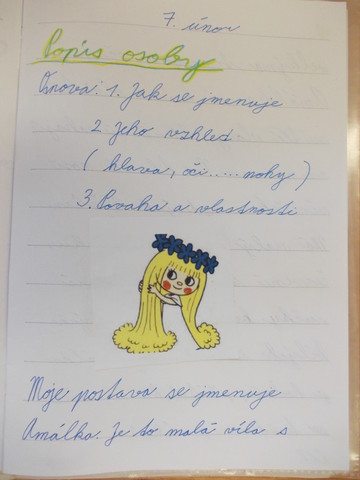 7. únor
Popis osoby
Osnova: 1. Jak se jmenuje
2 Jeho vzhled.
( hlava, oči..... nohy )
3. Povaha a vlastnosti
Moje postava se jmenuje
Amálka. Je to malá víla s